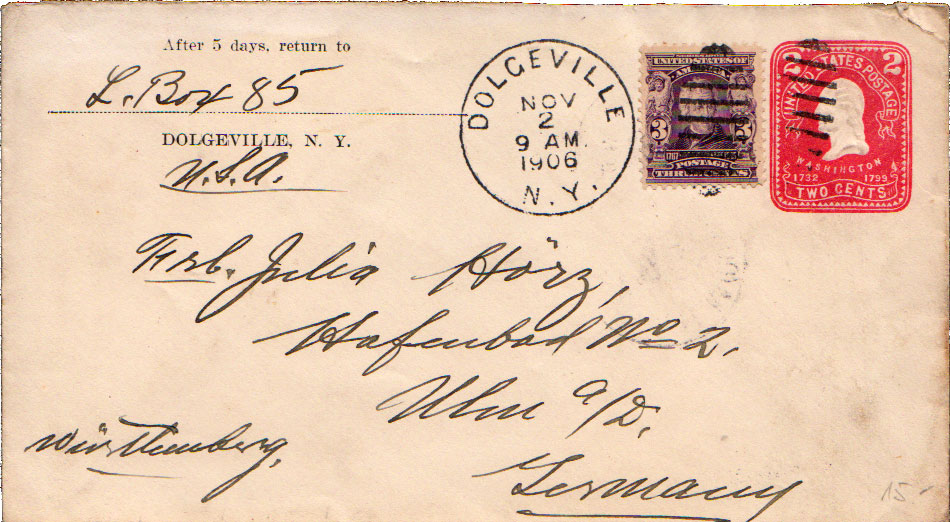 After 5 days, return to
L. Box 85
DOLGEVILLE, N. Y.
U.S.A.
DOLGEVILLE
NOV
2
9 AM
1906
N. Y.
UNITED STATES OF
AMERICA
3 3
POSTAGE
THREE CENTS
2 2
UNITED STATES POSTAGE
WASHINGTON
1732 1799
TWO CENTS
Julia Hörz,
Hafenbad No 2.
Ulm a/D.
Württemberg.
Germany
15